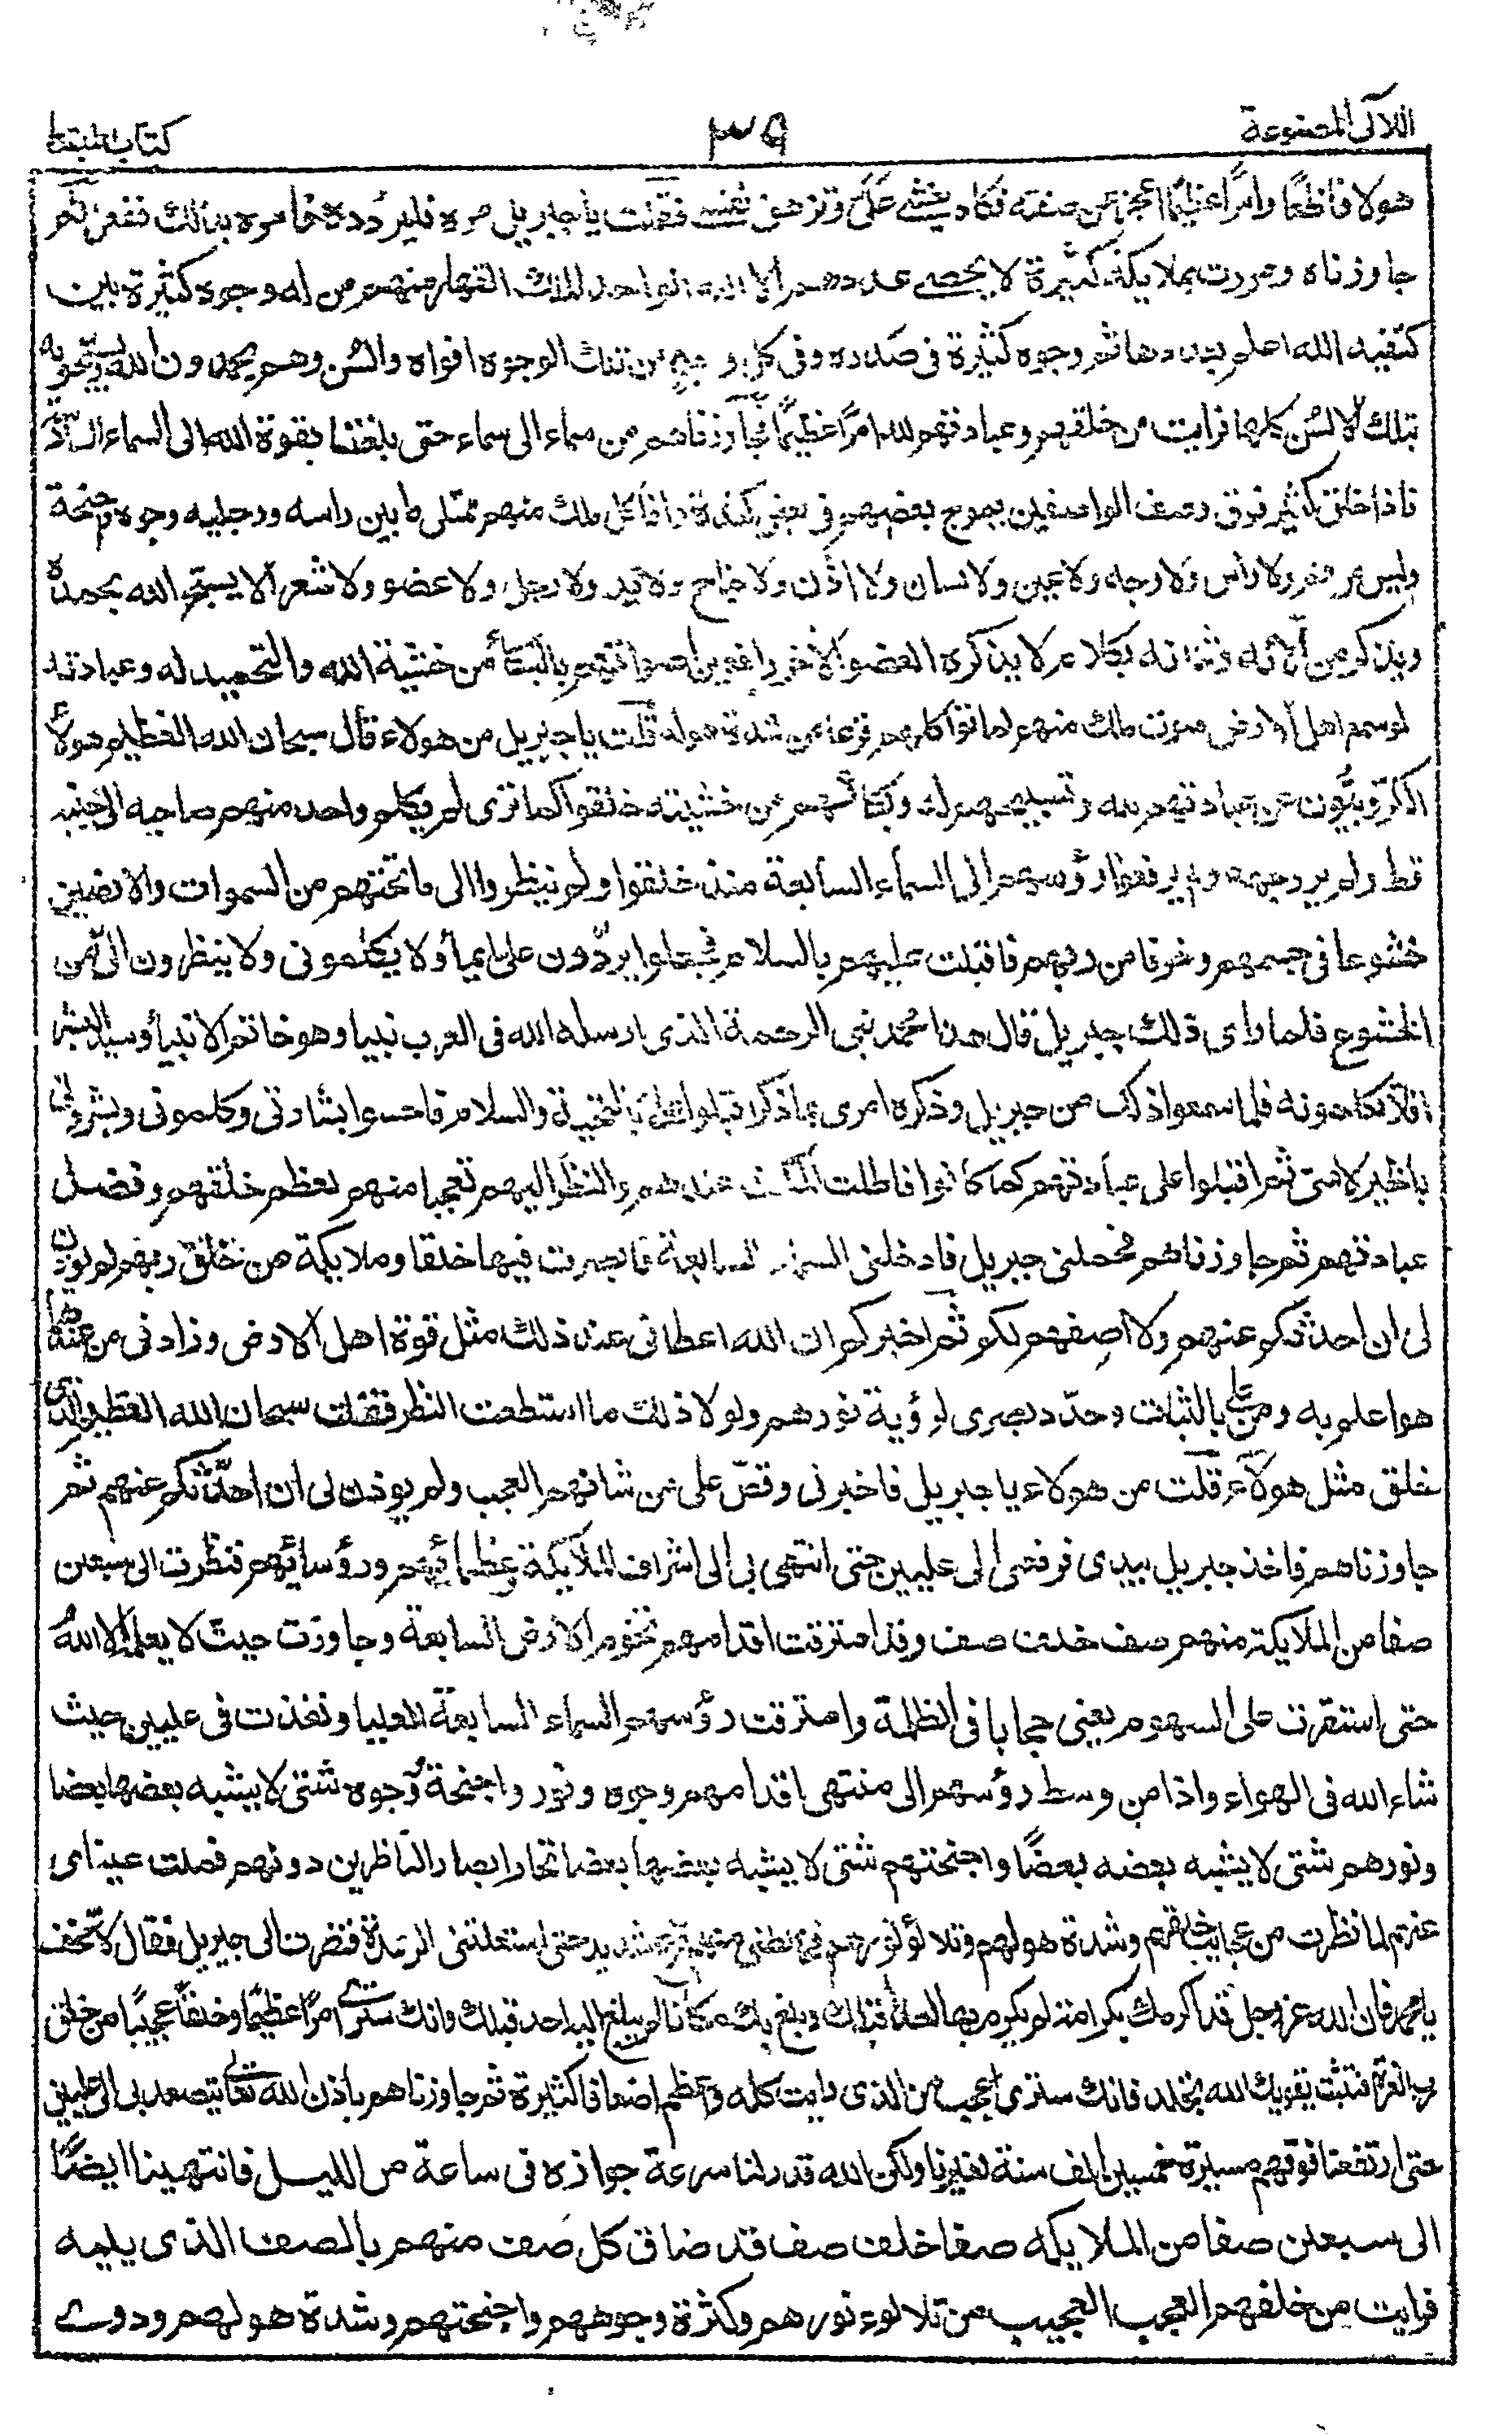 اللآلى المصنوعة
٣٥
كتاب المبتدا
هولا فاظعا وامرا عظيما اعجز عن صفته فكاد يغشى على وتزهق نفسى فقلت يا جبريل مره فليردده فامره بذالك ففعل ثم
جاوزناه ومررت بملايكة كثيرة لا يحصى عددهم الا الله الواحد الملك القهار منهم من له وجوه كثيرة بين
كتفيه الله اعلم بعددها ثم وجوه كثيرة فى صدره وفى كل وجه من تلك الوجوه افواه والسن وهم يحمدون الله ويسبحونه
بتلك الالسن كلها فرايت من خلقهم وعبادتهم لله امرا عظيما فجاوزناهم من سماء الى سماء حتى بلغنا بقوة الله الى السماء السادسة
فاذا خلق كثير فوق وصف الواصفين يموج بعضهم فى بعض كثرة واذا كل ملك منهم ممتلى ما بين راسه ورجليه وجوه واجنحة
وليس من فم ولا راس ولا وجه ولا عين ولا لسان ولا اذن ولا جناح ولا يد ولا رجل ولا عضو ولا شعر الا يسبح الله بحمده
ويذكر من آلائه وثنائه بكلام لا يذكره العضو الاخر رافعين اصواتهم بالبكاء من خشية الله والتحميد له وعبادته
لو سمع اهل الارض صوت ملك منهم لماتوا كلهم فزعا من شدة هوله قلت يا جبريل من هولاء قال سبحان الله العظيم هولاء
الكروبيون عن عبادتهم لله وتسبيحهم له وبكائهم من خشيته خلقوا كما ترى لم يكلم واحد منهم صاحبه الى جنبه
قط ولم ير وجهه ولم يرفعوا رؤسهم الى السماء السابعة منذ خلقوا ولم ينظروا الى ما تحتهم من السموات والارضين
خشوعا فى جسمهم وخوفا من ربهم فاقبلت عليهم بالسلام فجعلوا يردون على ايماء ولا يكلمونى ولا ينظرون الى من
الخشوع فلما راى ذلك جبريل قال هذا محمد نبى الرحمة الذى ارسله الله فى العرب نبيا وهو خاتم الانبياء وسيد البشر
افلا تكلمونه فلما سمعوا ذلك من جبريل وذكره امرى بما ذكر اقبلوا على بالتحية والسلام فاحسنوا بشارتى وكلمونى وبشرونى
بالخير لامتى ثم اقبلوا على عبادتهم كما كانوا فاطلت المكث عندهم والنظر اليهم تعجبا منهم لعظم خلقهم وفضل
عبادتهم ثم جاوزناهم فحملنى جبريل فادخلنى السماء السابعة فابصرت فيها خلقا وملايكة من خلق ربهم لم يوذن
لى ان احدثكم عنهم ولا اصفهم لكم ثم اخبركم ان الله اعطانى عند ذلك مثل قوة اهل الارض وزادنى من عنده ما
هو اعلم به ومن على بالثبات وحدد بصرى لرؤية نورهم ولولا ذلك ما استطعت النظر فقلت سبحان الله العظيم الذى
خلق مثل هولاء قلت من هولاء يا جبريل فاخبرنى وقص على من شانهم العجب ولم يوذن لى ان احدثكم عنهم ثم
جاوزناهم فاخذ جبريل بيدى فرفعنى الى عليين حتى انتهى بى الى اشراف الملايكة وعظمائهم ورؤسائهم فنظرت الى سبعين
صفا من الملايكة منهم صف خلف صف وقد امترقت اقدامهم تخوم الارض السابعة وجاوزت حيث لا يعلمه الا الله
حتى استقرت على السهوم يعنى حجابا فى الظلمة وامترقت رؤسهم السماء السابعة العليا ونفذت فى عليين حيث
شاء الله فى الهواء واذا من وسط رؤسهم الى منتهى اقدامهم وجوه ونور واجنحة وجوه شتى لا يشبه بعضها بعضا
ونورهم شتى لا يشبه بعضه بعضا واجنحتهم شتى لا يشبه بعضها بعضا تحار ابصار الناظرين دونهم فملت عيناى
عنهم لما نظرت من عجايب خلقهم وشدة هولهم وتلالؤ نورهم فخالطنى منهم فزع شديد حتى استعلتنى الرعدة فنظرت الى جبريل فقال لا تخف
يا محمد فان الله عز وجل قد اكرمك بكرامة لم يكرم بها احدا قبلك وبلغ بك مكانا لم يبلغ اليه احد قبلك وانك سترى امرا عظيما وخلقا عجيبا من خلق
رب العزة فتثبت يقويك الله بتجلد فانك سترى اعجب من الذى رايت كله واعظم اضعافا كثيرة ثم جاوزناهم باذن الله تعالى يتصعد بى الى عليين
حتى ارتفعنا فوقهم مسيرة خمسين الف سنة لغيرنا ولكن الله قدر لنا سرعة جوازه فى ساعة من الليل فانتهينا ايضا
الى سبعين صفا من الملايكه صفا خلف صف قد ضاق كل صف منهم بالصف الذى يليه
فرايت من خلقهم العجب العجيب من تلالوء نورهم وكثرة وجوههم واجنحتهم وشدة هولهم ودوى